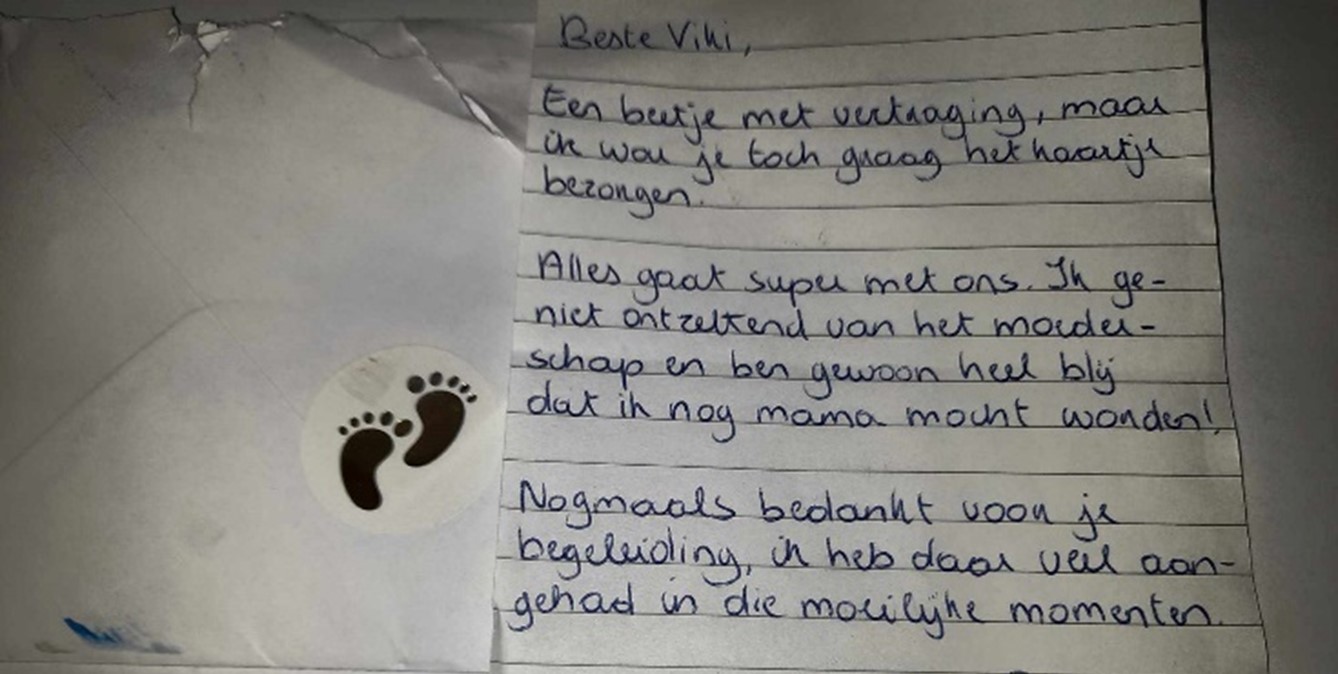 Beste Viki,
Een beetje met vertraging, maar
ik wou je toch graag het kaartje
bezorgen.
Alles gaat super met ons. Ik ge-
niet ontzettend van het moeder-
schap en ben gewoon heel blij
dat ik nog mama mocht worden!
Nogmaals bedankt voor je
begeleiding, ik heb daar veel aan-
gehad in die moeilijke momenten.